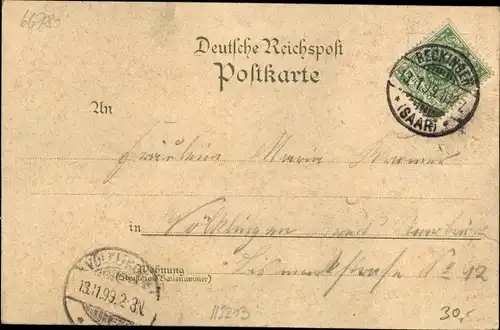 66783
Deutsche Reichspost
Postkarte
BECKINGEN
13.11.99
* (SAAR) *
An
Fräulein Maria Kramer
in Völklingen
Wohnung
(Straße und Hausnummer)
Bismarckstrasse No 42
VÖLKLINGEN
13.11.99.2-3N.
112213
30,-